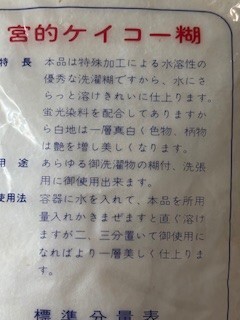 宮的ケイコー糊
特長 本品は特殊加工による水溶性の
優秀な洗濯糊ですから、水にさ
らっと溶けきれいに仕上ります。
蛍光染料を配合してありますか
ら白地は一層真白く色物、柄物
は艶を増し美しくなります。
用途 あらゆる御洗濯物の糊付、洗張
用に御使用出来ます。
使用法 容器に水を入れて、本品を所用
量入れかきまぜますと直ぐ溶け
ますが二、三分置いて御使用に
なればより一層美しく仕上りま
す。
標準分量表